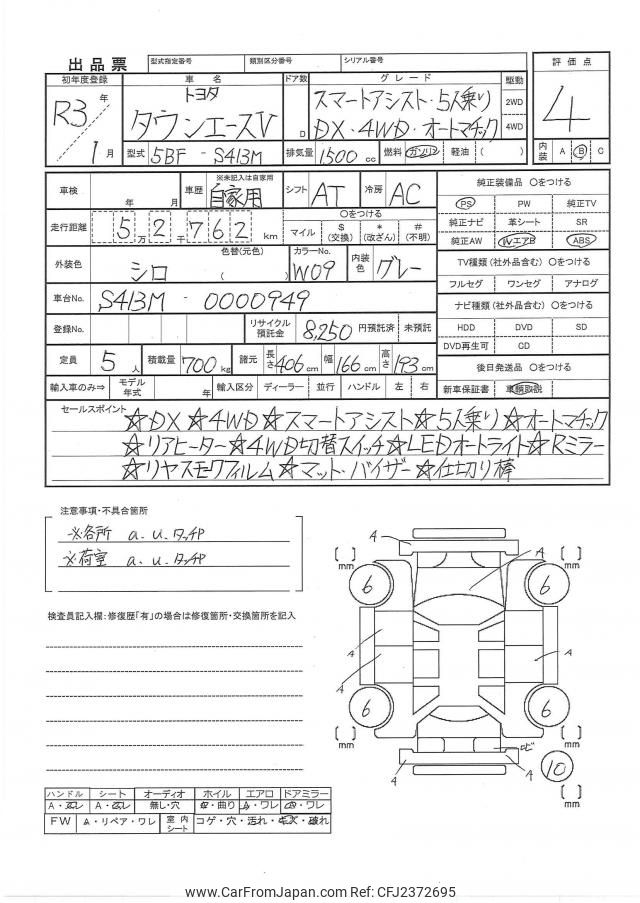 出品票 型式指定番号 類別区分番号 シリアル番号
初年度登録 車名 ドア数 グレード 駆動 評価点
R3年 トヨタ スマートアシスト・5人乗り 2WD 4
1月 タウンエースV D DX・4WD・オートマチック 4WD
型式 5BF - S413M 排気量 1500 cc 燃料 ガソリン 軽油 ( ) 内装 A B C
車検 年 月 車歴 ※未記入は自家用 自家用 シフト AT 冷房 AC 純正装備品 ○をつける
PS PW 純正TV
走行距離 5万2千762 km ○をつける マイル $(交換) *(改ざん) #(不明) 純正ナビ 革シート SR
純正AW WエアB ABS
外装色 シロ 色替(元色) ( ) カラーNo. W09 内装色 グレー TV種類(社外品含む) ○をつける
フルセグ ワンセグ アナログ
車台No. S413M - 0000949 ナビ種類(社外品含む) ○をつける
登録No. リサイクル預託金 8,250 円預託済 未預託 HDD DVD SD
DVD再生可 CD
定員 5人 積載量 700kg 諸元 長さ 406cm 幅 166cm 高さ 193cm 後日発送品 ○をつける
輸入車のみ⇒ モデル年式 年 輸入区分 ディーラー 並行 ハンドル 左 右 新車保証書 車輌取説
セールスポイント ☆DX☆4WD☆スマートアシスト☆5人乗り☆オートマチック
☆リアヒーター☆4WD切替スイッチ☆LEDオートライト☆Rミラー
☆リヤスモークフィルム☆マット・バイザー☆仕切り棒
注意事項・不具合箇所
※各所 a.u.タッチP
※荷室 a.u.タッチP
検査員記入欄:修復歴「有」の場合は修復箇所・交換箇所を記入
A A
[ ] mm [ ] mm
6 6
A A
A
6 6
[ ] mm [ ] mm
ロビ
A A
10
[ ] mm
ハンドル シート オーディオ ホイル エアロ ドアミラー
A・スレ A・スレ 無し・穴 キ・曲り A・ワレ ワレ
FW A・リペア・ワレ 室内シート コゲ・穴・汚れ 破れ
www.CarFromJapan.com Ref: CFJ2372695